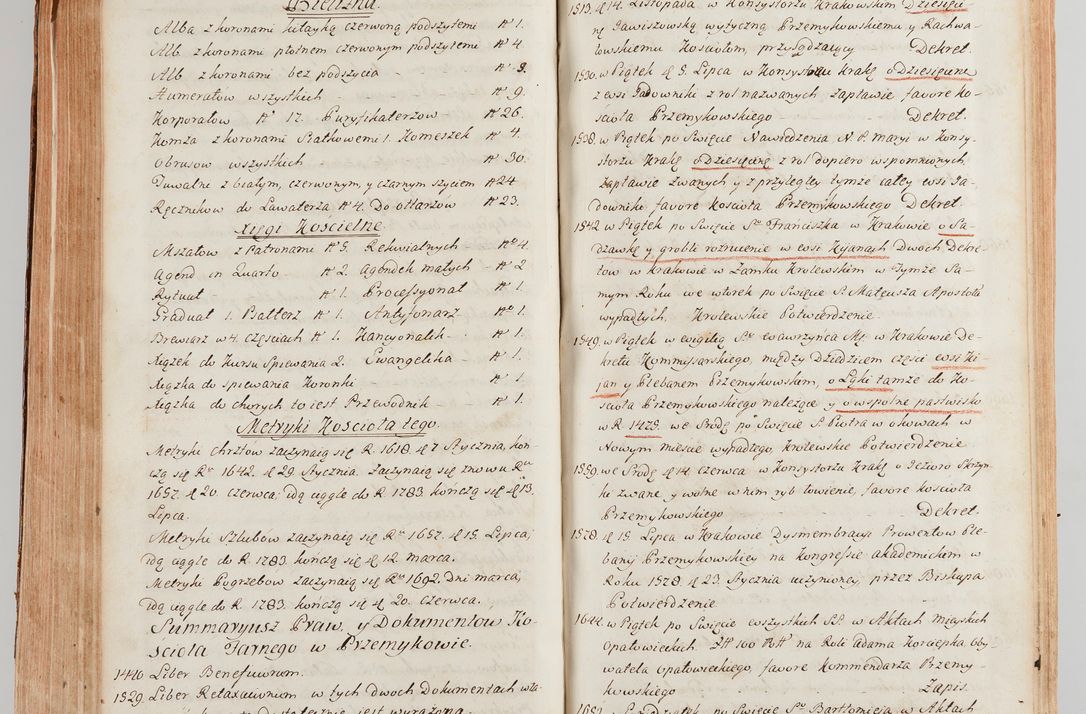 Bielizna.
Alba z koronami kitayką czerwoną podszytemi N 1.
Alb z koronami płotnem czerwonym podszytemi N 4
Alb z koronami bez podszycia - N 3.
Humerałow wszystkich - N 9
Korporałow N 17. Puryfikaterzow N 26.
Komża z koronami Siatkowemi 1. Komeszek N 4.
Obrusow wszystkich - N 30.
Tuwalni z białym, czerwonym, y czarnym szyciem N 24
Ręcznikow do Lawaterza N 4. Do ołtarzow N 23.
Xięgi Kościelne.
Mszałow z Patronami N 5. Rekwialnych N° 4
Agend in Quarto - N 2. Agendek małych - N 2
Rytuał - N 1. Processyonał N 1.
Graduał 1. Psałterz N 1. Antyfonarz N° 1.
Brewiarz w 4. częściach N 1. Kancyonalik - N 1.
Xiążek do Kursu Spiewania 2. Ewangelika - N 1.
Xiążka do spiewania Koronki N 1.
Xiążka do chorych to iest Przewodnik - N 1.
Metryki Kościoła tego.
Metryki chrztow zaczynaią się R. 1618. d 7 Stycznia, koń-
czą się R° 1642. d 29 Stycznia. Zaczynaią się znowu R°
1657. d 20. czerwca; idą ciągle do R. 1783 kończą się d 13.
Lipca.
Metryki Szlubów zaczynaią się R° 1657. d 15. Lipca;
idą ciągle do R. 1783. kończą się d 12. marca.
Metryki Pogrzebow zaczynaią się R° 1692. Dni marca;
idą ciągle do R. 1783. kończą się d 20. czerwca.
Summaryusz Praw, y Dokumentow Ko-
ścioła Farnego w Przemykowie.
1440. Liber Beneficiorum.
1529. Liber Retaxationum w tych dwoch Dokumentach
dostatecznie iest wyrażona
1513. d 14. Listopada w Konsystorzu Krakowskim Dziesięci
ny Jawiszowską wytyczną Przemykowskiemu y Rachwa-
łowskiemu Kościołom, przysądzaiący Dekret.
1530. w Piątek d 5. Lipca w Konsystorzu Krakō o Dziesięcinę
z wsi Jadowniki z rol nazwanych Zapławie favore ko-
ścioła Przemykowskiego - Dekret.
1538. w Piątek po Swięcie Nawiedzenia N. P. Maryi w Konsy-
storzu Krakō o Dziesięcinę z rol dopiero wspomnionych
Zapławie zwanych y z przyległey tymże całey wsi Ja-
downiki favore kościoła Przemykowskiego Dekret.
1542. w Piątek po Swięcie S° Franciszka w Krakowie o Sa-
dzawkę y grobli rozrucenie w wsi Kijanach Dwoch Dekre-
tow w Krakowie w Zamku Krolewskim w Tymże Sa-
mym Roku we wtorek po Swięcie S. Mateusza Apostoła
wypadłych. Krolewskie Potwierdzenie.
1549. w Piątek w wigilią S° Wawrzyńca M. w Krakowie De-
kretu Kommisarskiego, między Dziedzicem części wsi Ki-
jan y Plebanem Przemykowskim, o Łąki tamże do Ko-
ścioła Przemykowskiego należące y o wspolne pastwisko
w R. 1475. we Srodę po Swięcie S. Piotra w okowach w
Nowym mieście wypadłego Krolewskie Potwierdzenie.
1559. we Srodę d 14. czerwca w Konsystorzu Krakō o Jezioro Skrzyn-
ki zwane y wolne w nim ryb łowienie, favore kościoła
Przemykowskiego - Dekret.
1578. d 15. Lipca w Krakowie Dysmembracya Prowentow Ple-
banij Przemykowskiey na Kongresie akademickim w
Roku 1578. d 23. Stycznia uczynioney, przez Biskupa
Potwierdzenie
1644. w Piątek po Swięcie wszystkich SS. w Aktach Mieyskich
Opatowieckich. na Roli adama Korciepka Oby-
watela opatowieckiego, favore kommendarza Przemy-
kowskiego - Zapis.
po Swięcie S° Bartłomieja w Aktach